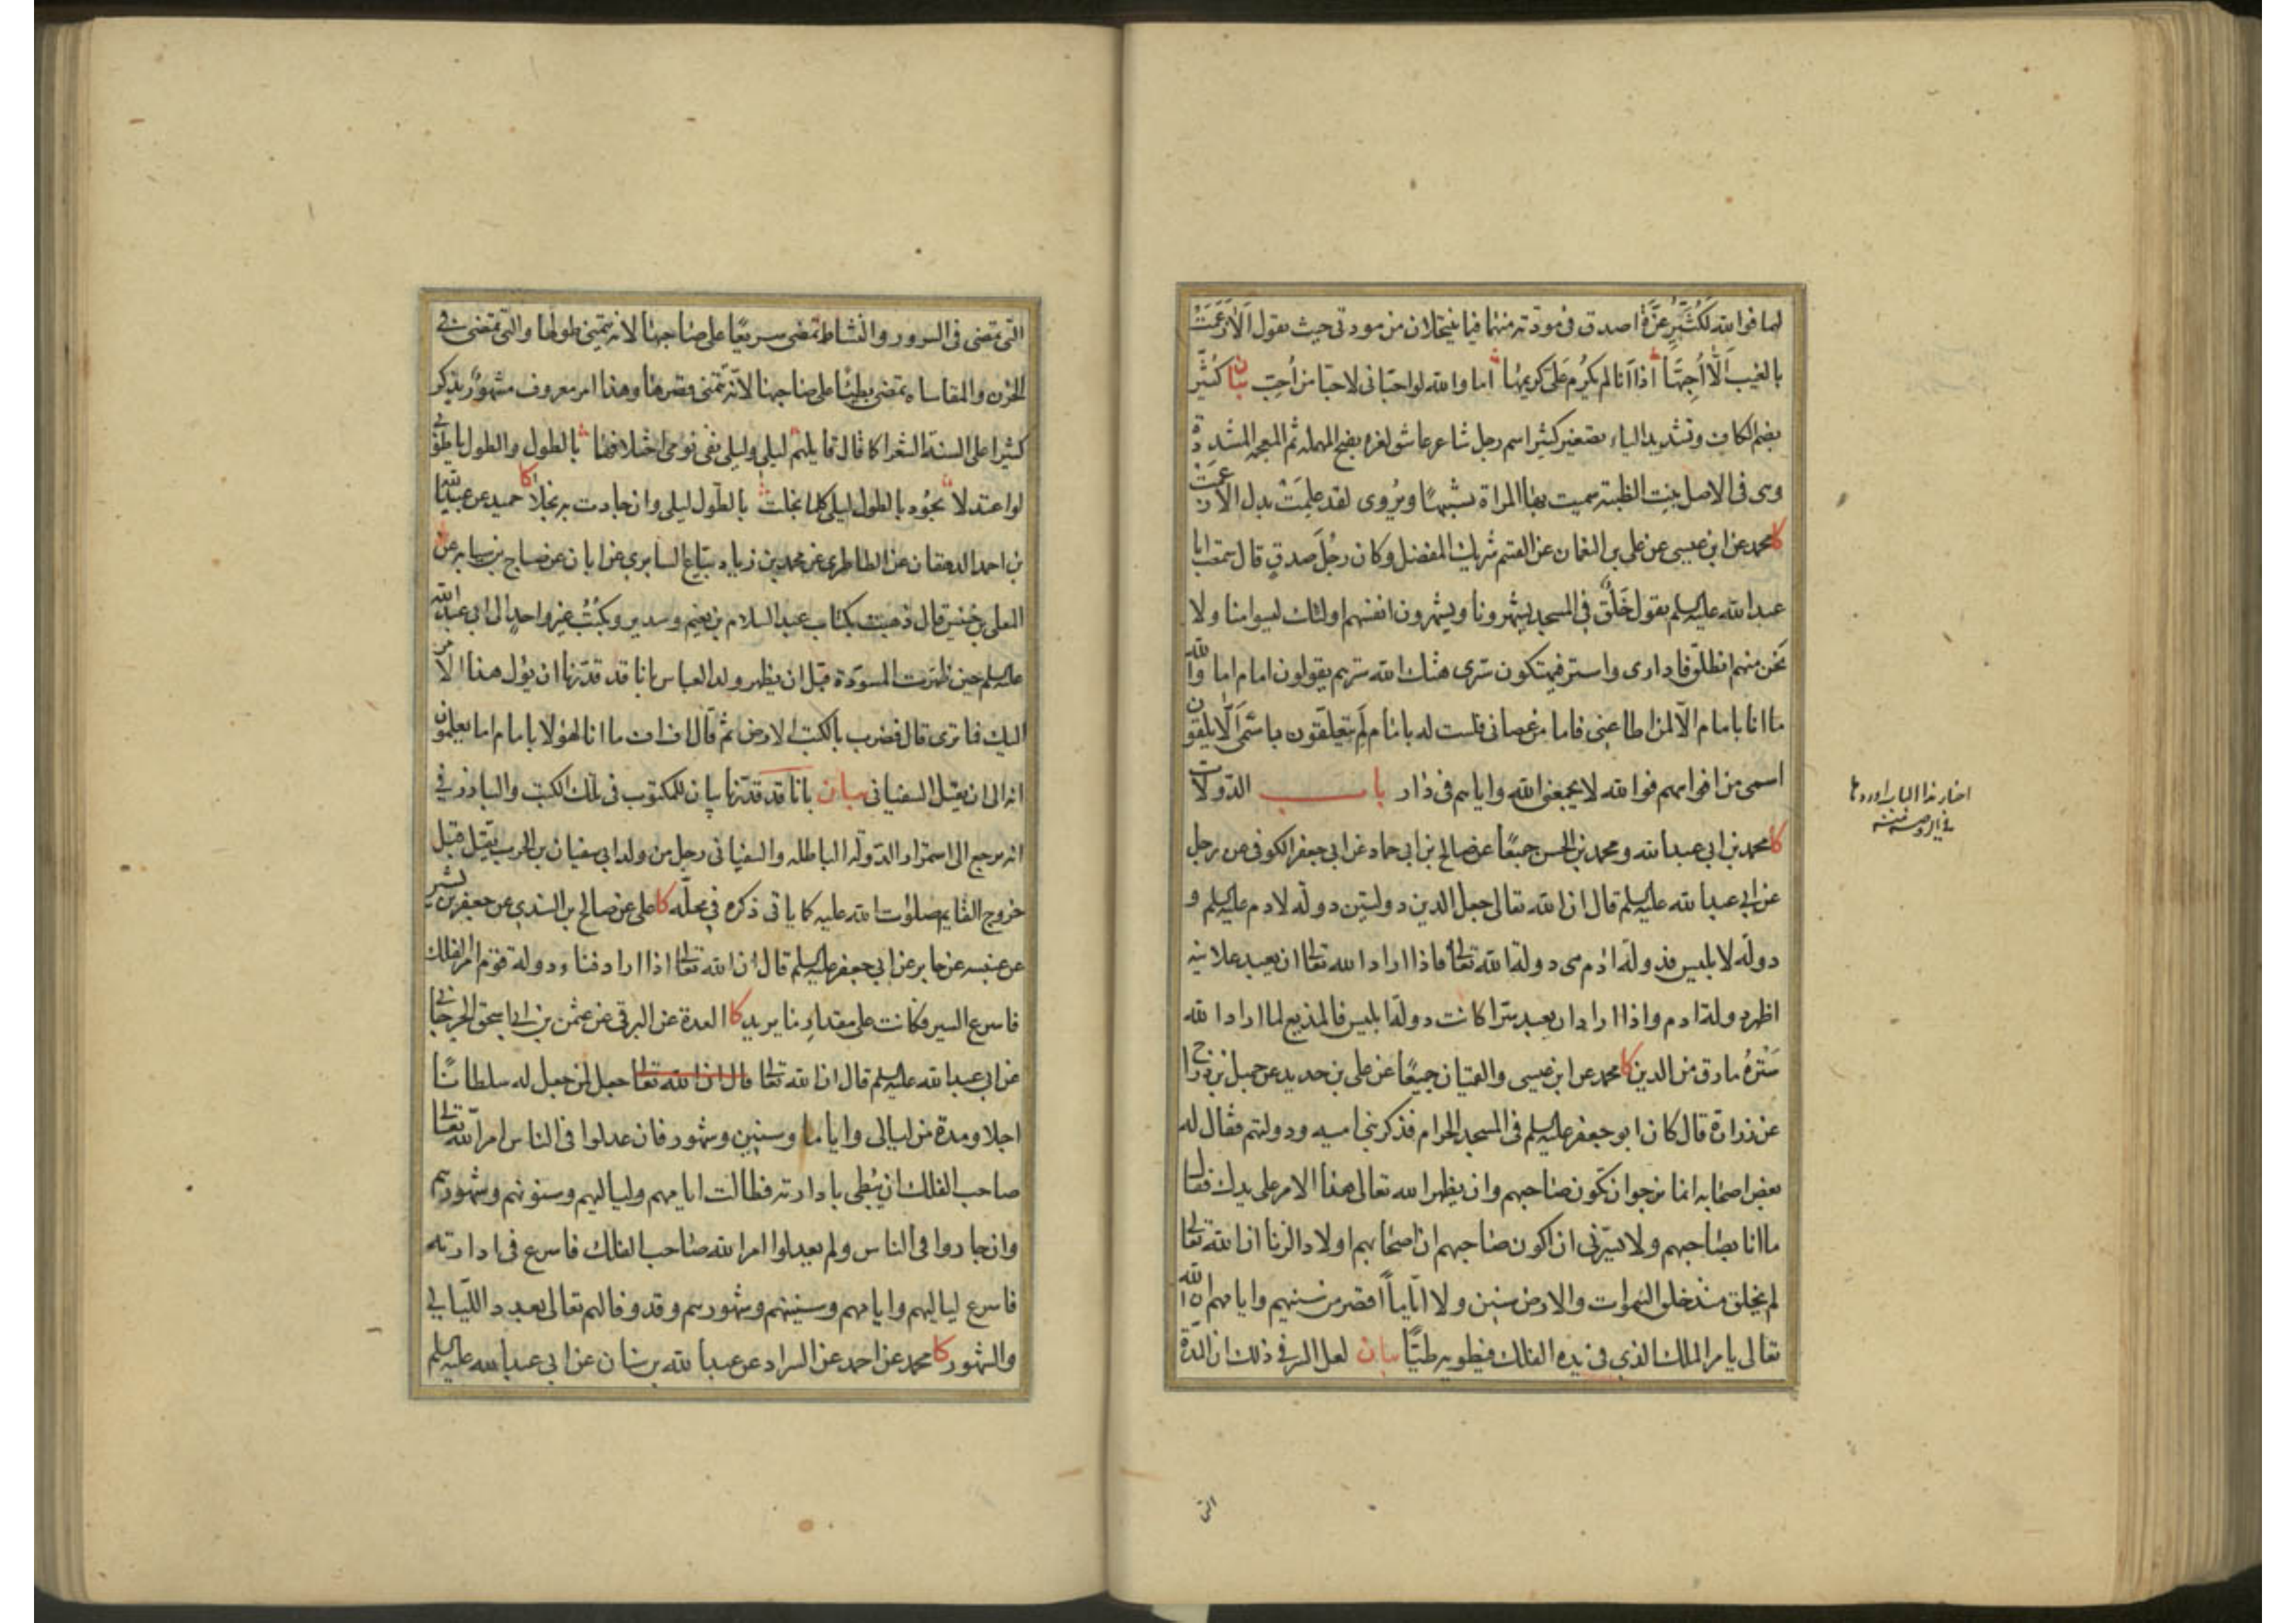 لهما فوالله لكُثَيِّرُ عَزَّةَ اصدق فى مودّته منهما فيما ينتحلان من مودتى حيث يقول اَلاٰ زَعَمَتْ
بالغيبِ اَلّا اُحِبَّهَا اذا اَنَا لم يُكرَم عَلَىّ كريمها اما والله لو احبّانى لاحبّا من اُحِبّ بيان كُثَيِّر
بضم الكاف وتشديد الياء بتصغير كثير اسم رجل شاعر عاشق لعزه بفتح المهمله ثم المعجمه المشدّدة
وهى فى الاصل بنت الظبية سميت بها المراة تشبيهًا ويُروى لقد علِمَتْ بدل الا زعمَتْ
كا محمد عن ابن عيسى عن على بن النعمان عن القسم شريك المفضل وكان رجُلَ صدقٍ قال سمعت ابا
عبد الله عليه السلم يقول خَلَقٌ فى المسجد يشهرونا ويشهرون انفسهم اولئك ليسوا منا ولا
نحن منهم انطلق فادارى واستر فيهتكون سترى هتك الله سترهم يقولون امام اما والله
ما انا بامام الّا لمن اطاعنى فاما من عصانى فلست له بامام لِمَ يتعلّقون باسمى اَلّا يلقون
اسمى من افواههم فوالله لا يجمعنى الله واياهم فى دار باب الدّولات
كا محمد بن ابى عبد الله ومحمد بن الحسن جميعًا عن صالح بن ابى حماد عن ابى جعفر الكوفى عن رجل
عن ابى عبد الله عليه السلم قال ان الله تعالى جعل الدين دولتين دولة لادم عليه السلم و
دولة لابليس فدولة ادم هى دولة الله تعالى فاذا اراد الله تعالى ان يعبد علانية
اظهر دولة ادم واذا اراد ان يعبد سرّا كانت دولة ابليس فالمذيع لما اراد الله
سَتْرَهُ مارق من الدين كا محمد عن ابن عيسى والقميان جميعًا عن على بن حديد عن جميل بن دراج
عن زرارة قال كان ابو جعفر عليه السلم فى المسجد الحرام فذكر بنى اميه ودولتهم فقال له
بعض اصحابه انما نرجو ان تكون صاحبهم وان يظهر الله تعالى هذا الامر على يدك فقال
ما انا بصاحبهم ولا يسرّنى ان اكون صاحبهم ان اصحابهم اولاد الزنا ان الله تعالى
لم يخلق منذ خلق السموات والارض سنين ولا ايّاماً اقصر من سنينهم وايامهم ان الله
تعالى يامر الملك الذى فى يده الفلك فيطويه طيّاً بيان لعل السر فى ذلك ان المدّة
التى
اخبار هذا الباب اوردها
فى الروضة
التى تمضى فى السرور والنشاط تمضى سريعًا على صاحبها لانه يتمنى طولها والتى تمضى فى
الحزن والمقاساة تمضى بطيئا على صاحبها لانّه يتمنى قصرها وهذا امر معروف مشهور يذكر
كثيرا على السنة الشعرا كما قال قايلهم ليلى وليلى نفى نومى اختلافهما بالطول والطول يا طوبى
لو اعتدلا يجُود بالطول ليلى كلما بخلت بالطول ليلى وان جادت به بخلا كا حميد عن عبيد الله
بن احمد الدهقان عن الطاطرى عن محمد بن زياد بيّاع السابرى عن ابان عن صباح بن سيابه عن
المعلى بن خنيس قال ذهبت بكتاب عبد السلام بن نعيم وسدير وكُتُب غير واحدٍ الى ابى عبد الله
عليه السلم حين ظهرت المسوّدة قبل ان يظهر ولد العباس بانا قد قدّرنا ان يؤل هذا الامر
اليك فما ترى قال فضرب بالكتب الارض ثم قال اف اف ما انا لهؤلا بامام اما يعلمون
انه الى ان يقتل السفيانى بيان بانا قد قدّرنا بيان للمكتوب فى تلك الكتب والبارز فى
انه يرجع الى استمرار الدّولة الباطله والسفيانى رجل من ولد ابى سفيان بن الحرب يقتل قبل
خروج القايم صلوات الله عليه كما ياتى ذكره فى محلّه كا على عن صالح بن السندى عن جعفر بن بشير
عن عنبسه عن جابر عن ابى جعفر عليه السلم قال ان الله تعالى اذا اراد فناء دولة قوم امر الفلك
فاسرع السير فكانت على مقدارِ ما يريد كا العدة عن البرقى عن عثمن بن ابى اسحق الجرجانى
عن ابى عبد الله عليه السلم قال ان الله تعالى قال ان الله تعالى جعل لمن جعل له سلطانًا
اجلا ومدة من ليالى واياما وسنين وشهور فان عدلوا فى الناس امر الله تعالى
صاحب الفلك ان يُبطى بادارته فطالت ايامهم ولياليهم وسنونهم وشهورهم
وان جاروا فى الناس ولم يعدلوا امر الله صاحب الفلك فاسرع فى ادارته
فاسرع لياليهم وايامهم وسنينهم وشهورهم وقد وفا لهم تعالى بعدد اللّيالى
والشهور كا محمد عن احمد عن السراد عن عبد الله بن سنان عن ابى عبد الله عليه السلم